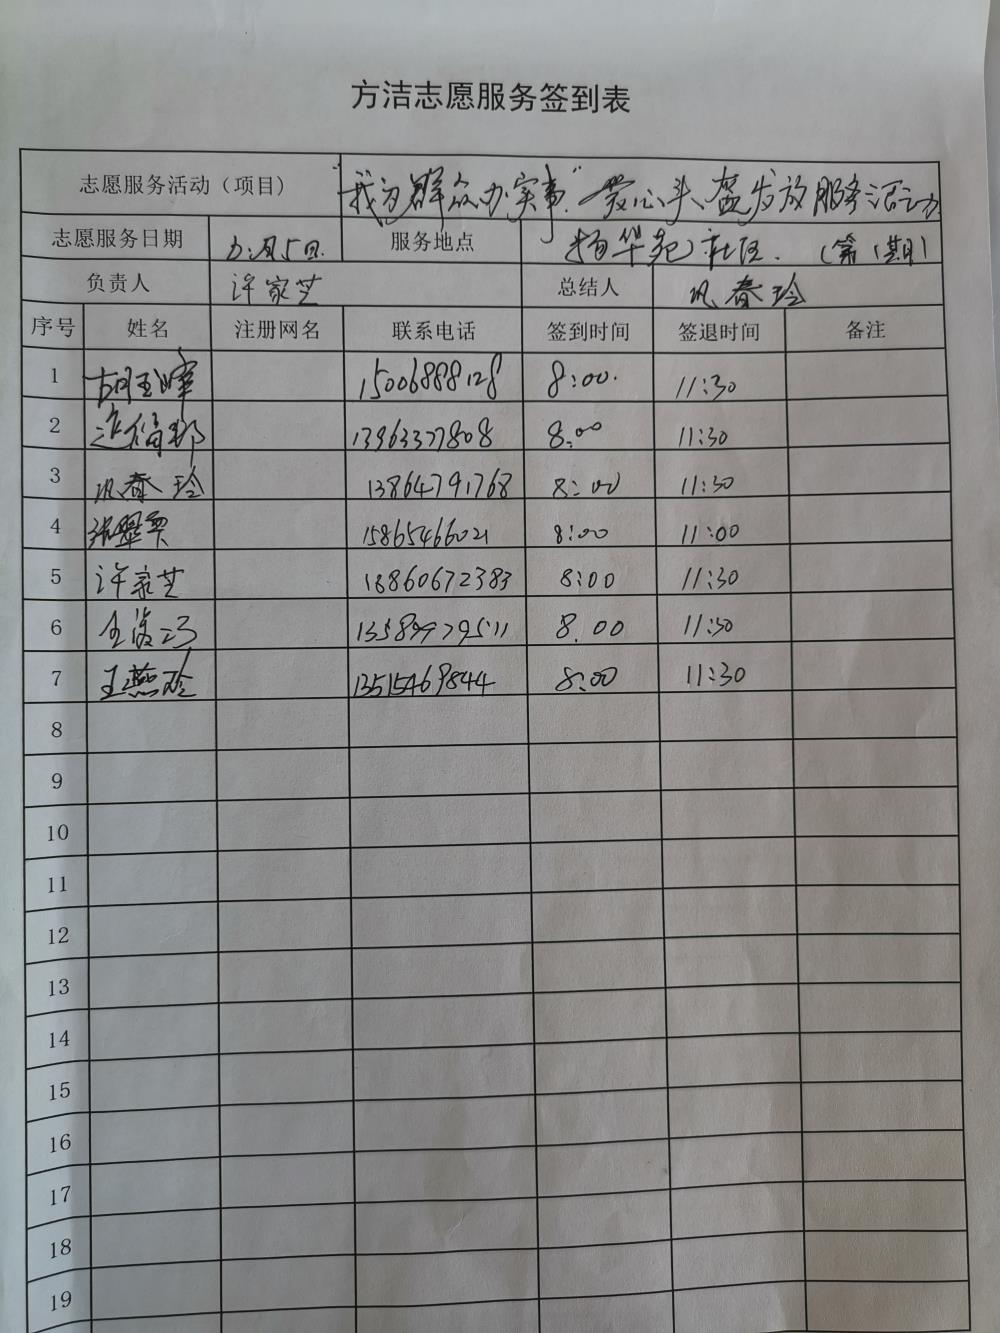 方洁志愿服务签到表
志愿服务活动（项目） "我为群众办实事"爱心头盔发放服务活动
志愿服务日期 月5日. 服务地点 华苑社区. （第1期）
负责人 许家芝 总结人 巩春玲
序号 姓名 注册网名 联系电话 签到时间 签退时间 备注
1 胡玉峰 15006888128 8:00. 11:30
2 13963377808 8:00 11:30
3 巩春玲 13864791768 8:00 11:30
4 张翠 15865466021 8:00 11:00
5 许家芝 18860672383 8:00 11:30
6 8.00 11:30
7 王燕玲 13515469844 8:00 11:30
8
9
10
11
12
13
14
15
16
17
18
19